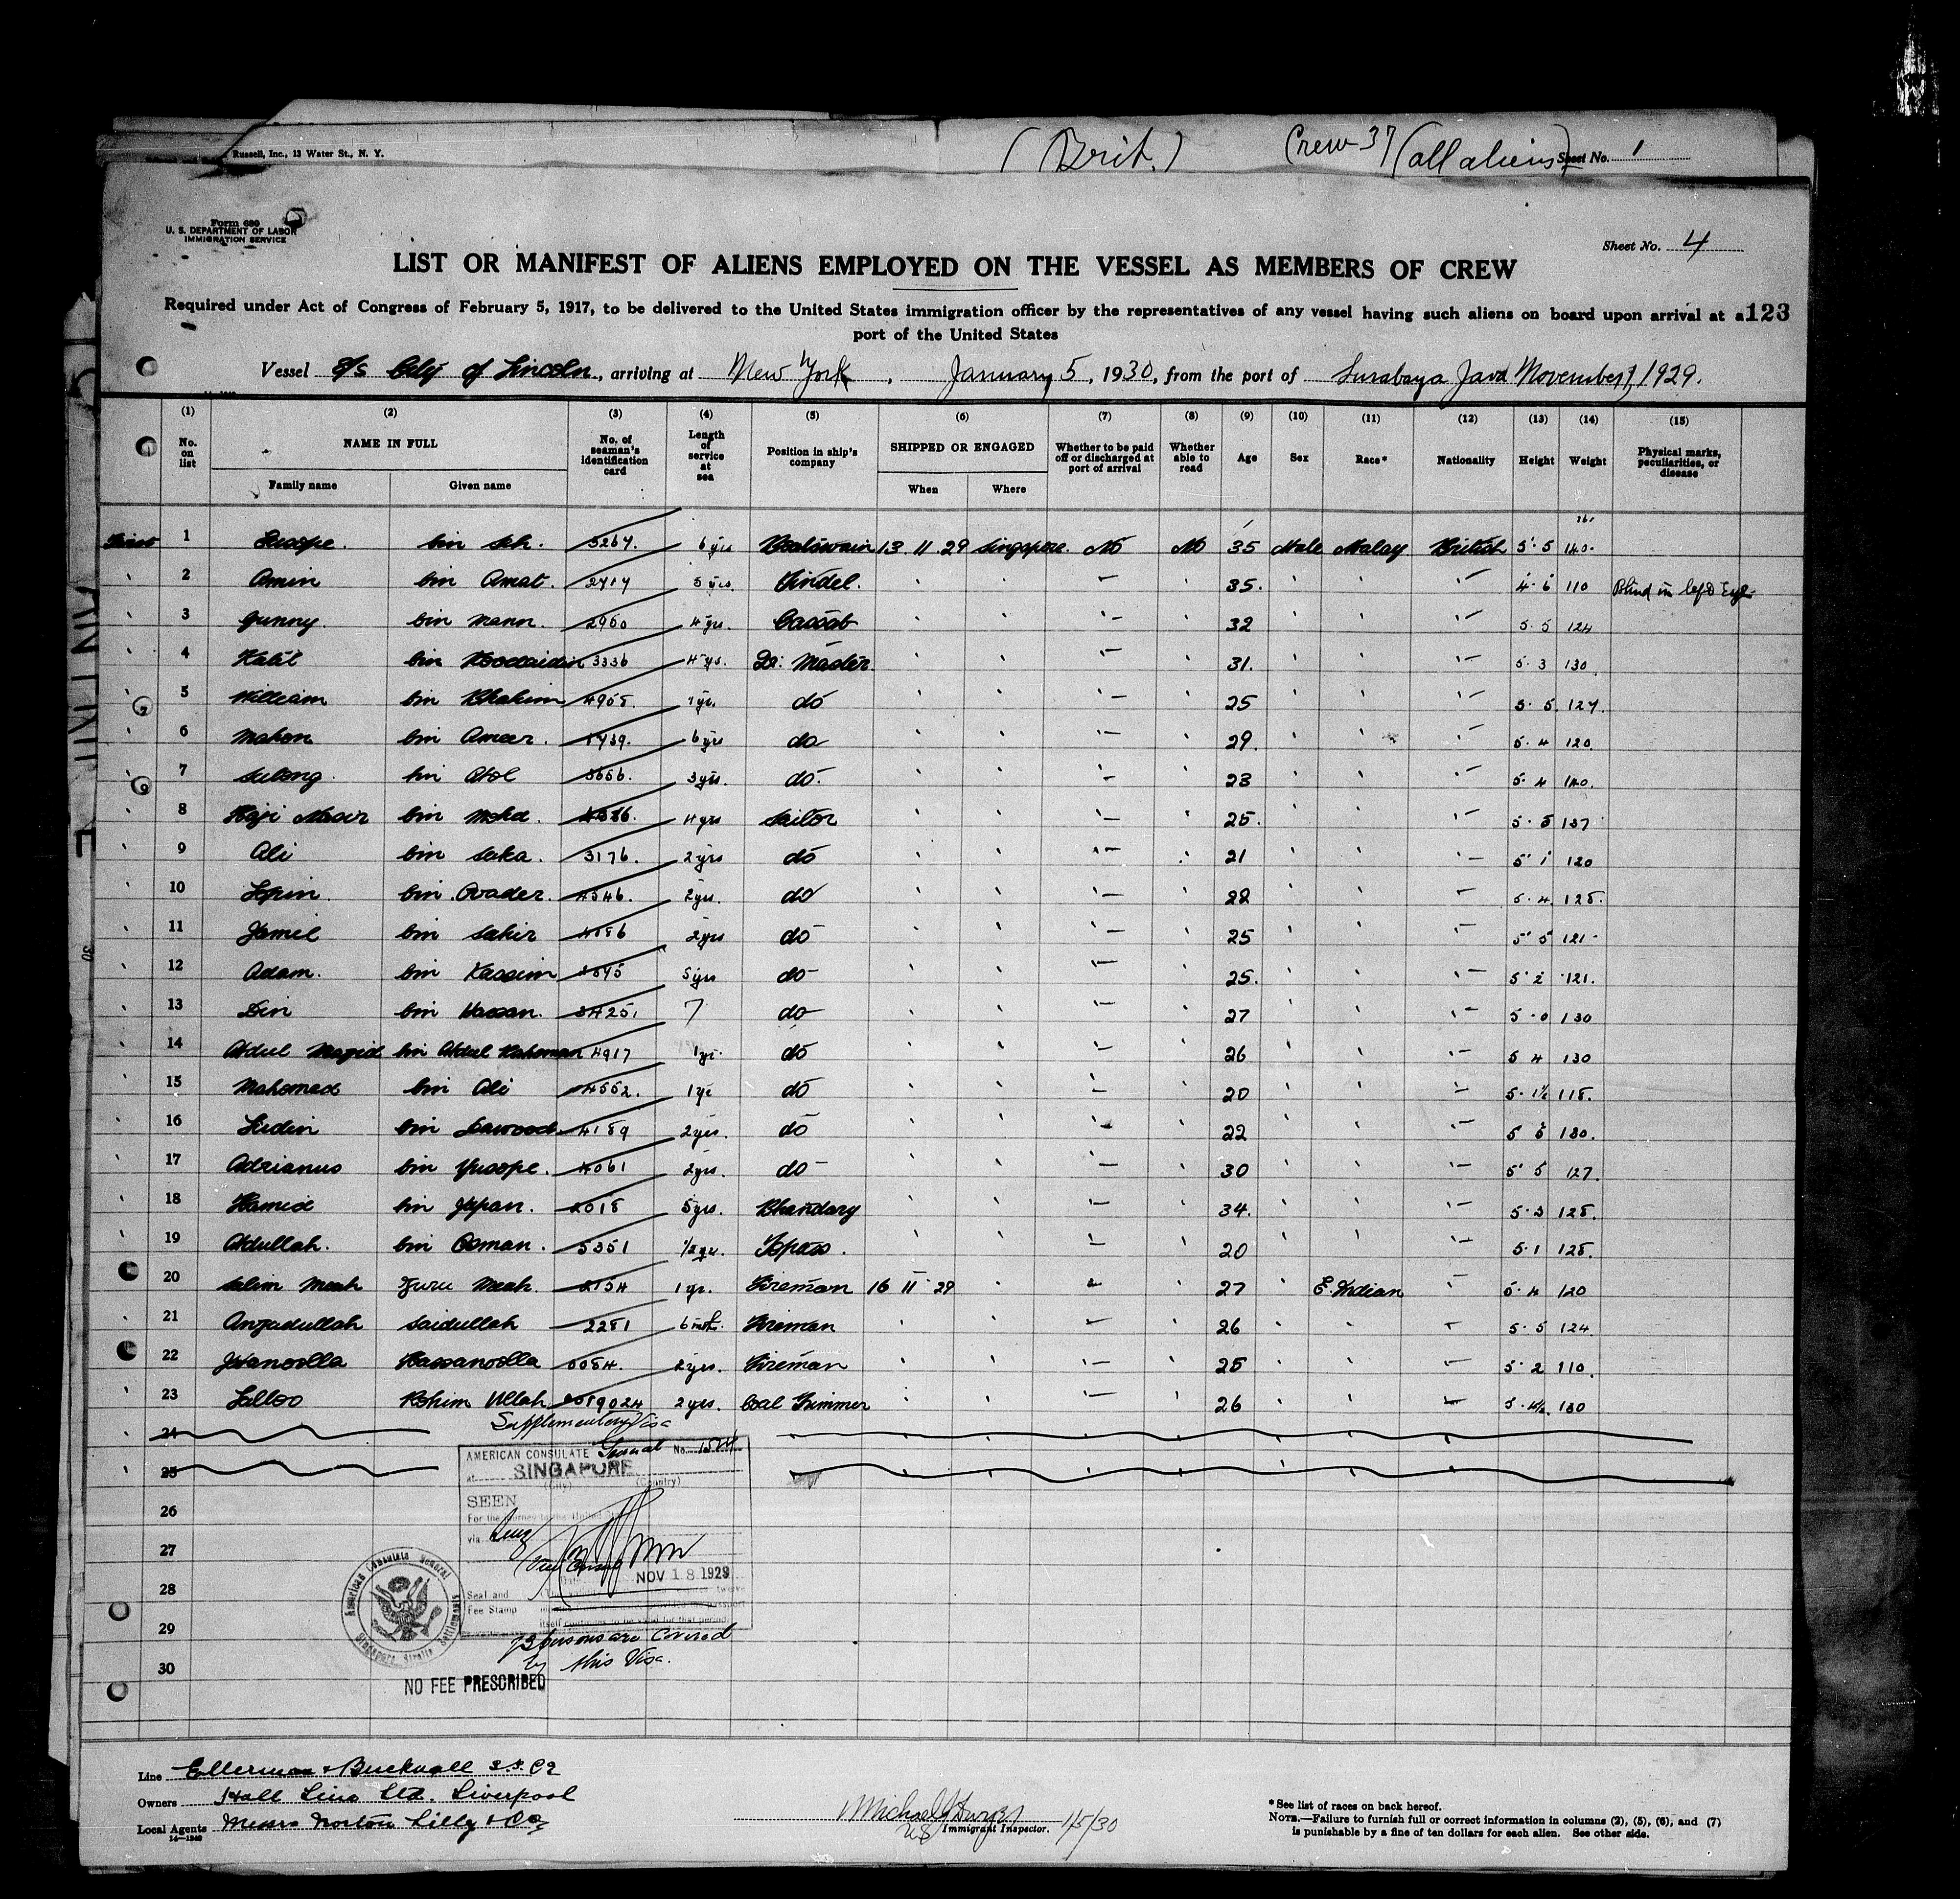 Russell, Inc., 13 Water St., N. Y.
(Brit.) Crew 37 (all aliens) Sheet No. 1
Form 680
U. S. DEPARTMENT OF LABOR
IMMIGRATION SERVICE
Sheet No. 4
LIST OR MANIFEST OF ALIENS EMPLOYED ON THE VESSEL AS MEMBERS OF CREW
Required under Act of Congress of February 5, 1917, to be delivered to the United States immigration officer by the representatives of any vessel having such aliens on board upon arrival at a 123
port of the United States
Vessel S/S City of Lincoln, arriving at New York, January 5, 1930, from the port of Surabaya Java November 1929.
(1) (2) (3) (4) (5) (6) (7) (8) (9) (10) (11) (12) (13) (14) (15)
No. on list NAME IN FULL No. of seaman's identification card Length of service at sea Position in ship's company SHIPPED OR ENGAGED Whether to be paid off or discharged at port of arrival Whether able to read Age Sex Race* Nationality Height Weight Physical marks, peculiarities, or disease
Family name Given name When Where
1 bin 5267. 6 yrs Boatswain 13 11 29 Singapore No No 35 Male Malay British 5 5 140
2 Amin bin Amat. 5 yrs. Tindel. 35. 110 Blind in left Eye
3 Gunny bin Mann. 2960 4 yrs. Cassab 32 5.5 124
4 Halil bin 3336 4 yrs. Qr. Master 31. 5.3 130
5 William bin 4905. 1 yr. do 25 5.5 127.
6 Mahon bin Ameer. 6 yrs do 29. 5.4 120
7 Sulong bin Atol 3656. 3 yrs. do. 28 5.4 140.
8 Haji bin Mohd. 4 yrs Sailor 25. 5.5 137
9 Ali bin Saka. 3176. 2 yrs do 21 5 1 120
10 bin 4546. 2 yrs. do 22 5.4 125.
11 Jamil bin Sahir 2 yrs do 25 5 5 121
12 Adam. bin Kassim 5 yrs do 25. 5 2 121.
13 Din bin Hassan. 3425. 7 do 27 5.0 130
14 Abdul Magid bin Abdul Rahman 4917 1 yr. do 26 5 4 130
15 Mahomed bin Ali 4552. 1 yr do 20 5.1½ 115.
16 Ludin bin Dawood 4189 2 yrs. do 22 130.
17 Adrianus bin Yusope. 4061 2 yrs. do 30 5 5 127.
18 Hamid bin Japan. 5 yrs. Bhandary 34. 5.3 125.
19 Abdullah. bin Osman. 5351 ½ yr. Topass. 20 5.1 125.
20 Salim Meah Meah. 2154 1 yr. Fireman 16 11 29 27 E. Indian 5.4 120
21 Amjadullah Saidullah 2251 6 mth. Fireman 26 5.5 124.
22 Hassanoolla 2 yrs. Fireman 25 5.2 110.
23 Rohim Ullah 2 yrs. Coal Trimmer 26 5.4½ 130
24 Supplementary Visa
AMERICAN CONSULATE General No.
25 at SINGAPORE
(City) (Country)
26 SEEN
For the journey to the United States
27 via
Vice Consul
28 Date NOV 18 1929
Seal and
Fee Stamp
itself continues to be valid for that period.
29 23 persons are covered
30 by this Visa.
American Consulate General Singapore Straits Settlements
NO FEE PRESCRIBED
Line Ellerman & Bucknall S.S. Co
Owners Hall Line Ltd. Liverpool
Local Agents Messrs Norton Lilly & Co
14—1240
Michael
US Immigrant Inspector. 1/5/30
* See list of races on back hereof.
NOTE.—Failure to furnish full or correct information in columns (2), (5), (6), and (7)
is punishable by a fine of ten dollars for each alien. See other side.